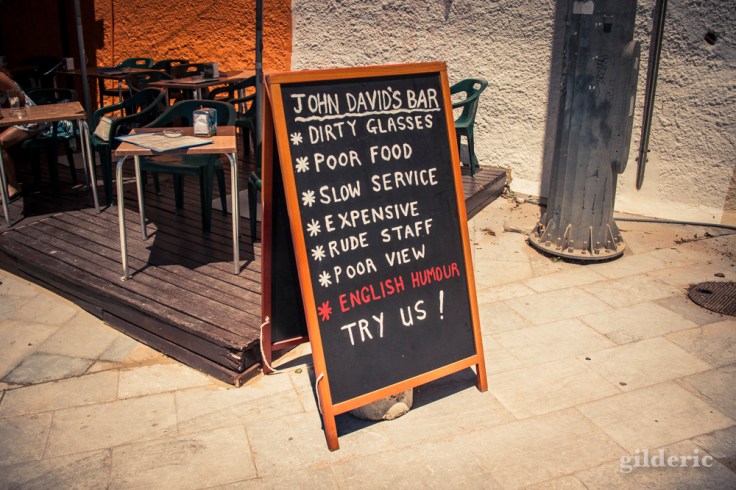 JOHN DAVID'S BAR
* DIRTY GLASSES
* POOR FOOD
* SLOW SERVICE
* EXPENSIVE
* RUDE STAFF
* POOR VIEW
* ENGLISH HUMOUR
TRY US !
gilderic